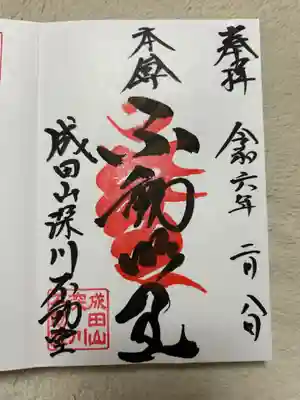 奉拝
令和六年 二月 八日
本尊
不動明王
成田山深川不動堂
成田山
深川